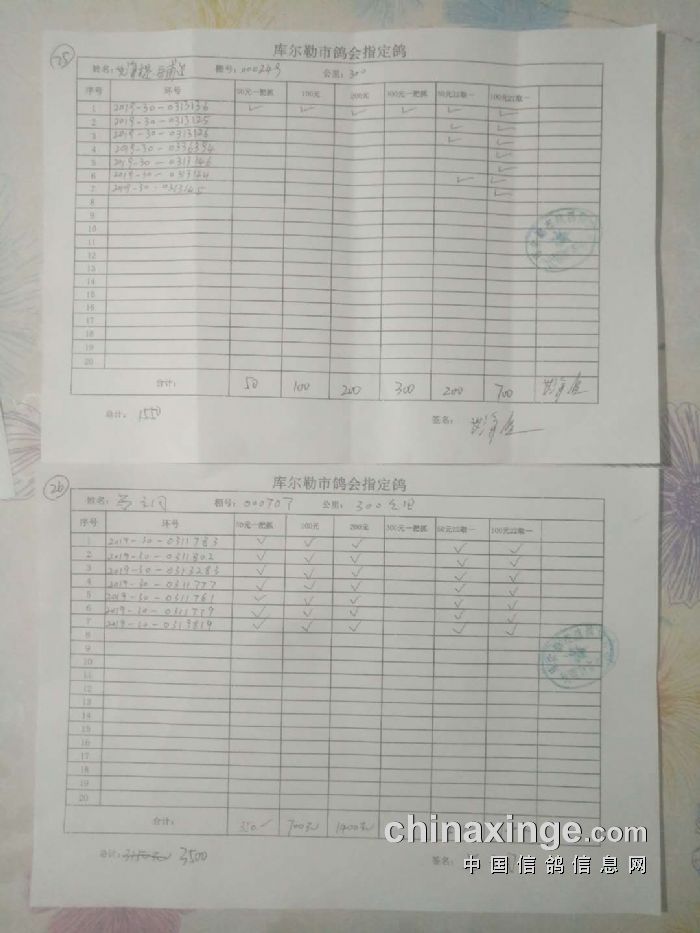 25
库尔勒市鸽会指定鸽
姓名: 棚号: 000249 公里: 300
序号 环号 50元一把抓 100元 200元 300元一把抓 50元以取一 100元以取一
1 2019-30-0313136 ✓ ✓ ✓ ✓ ✓ ✓
2 2019-30-0313125 ✓ ✓
3 2019-30-0313126 ✓ ✓
4 2019-30-0336394 ✓
5 2019-30-0313146 ✓
6 2019-30-0313144 ✓ ✓
7 2019-30-0313145 ✓
8
9
10
11
12
13
14
15
16
17
18
19
20
合计: 50 100 200 300 200 700
总计: 1550 签名:
26
库尔勒市鸽会指定鸽
姓名: 棚号: 000707 公里: 300公里
序号 环号 50元一把抓 100元 200元 300元一把抓 50元以取一 100元以取一
1 2019-30-0311783 ✓ ✓ ✓ ✓ ✓
2 2019-30-0311802 ✓ ✓ ✓ ✓ ✓
3 2019-30-0313283 ✓ ✓ ✓ ✓ ✓
4 2019-30-0311777 ✓ ✓ ✓ ✓ ✓
5 2019-30-0311761 ✓ ✓ ✓ ✓ ✓
6 2019-30-0311779 ✓ ✓ ✓ ✓ ✓
7 2019-30-0313819 ✓ ✓ ✓ ✓ ✓
8
9
10
11
12
13
14
15
16
17
18
19
20
合计: 350 700元 1400元
总计: 3150元 3500 签名:
chinaxinge.com
中国信鸽信息网